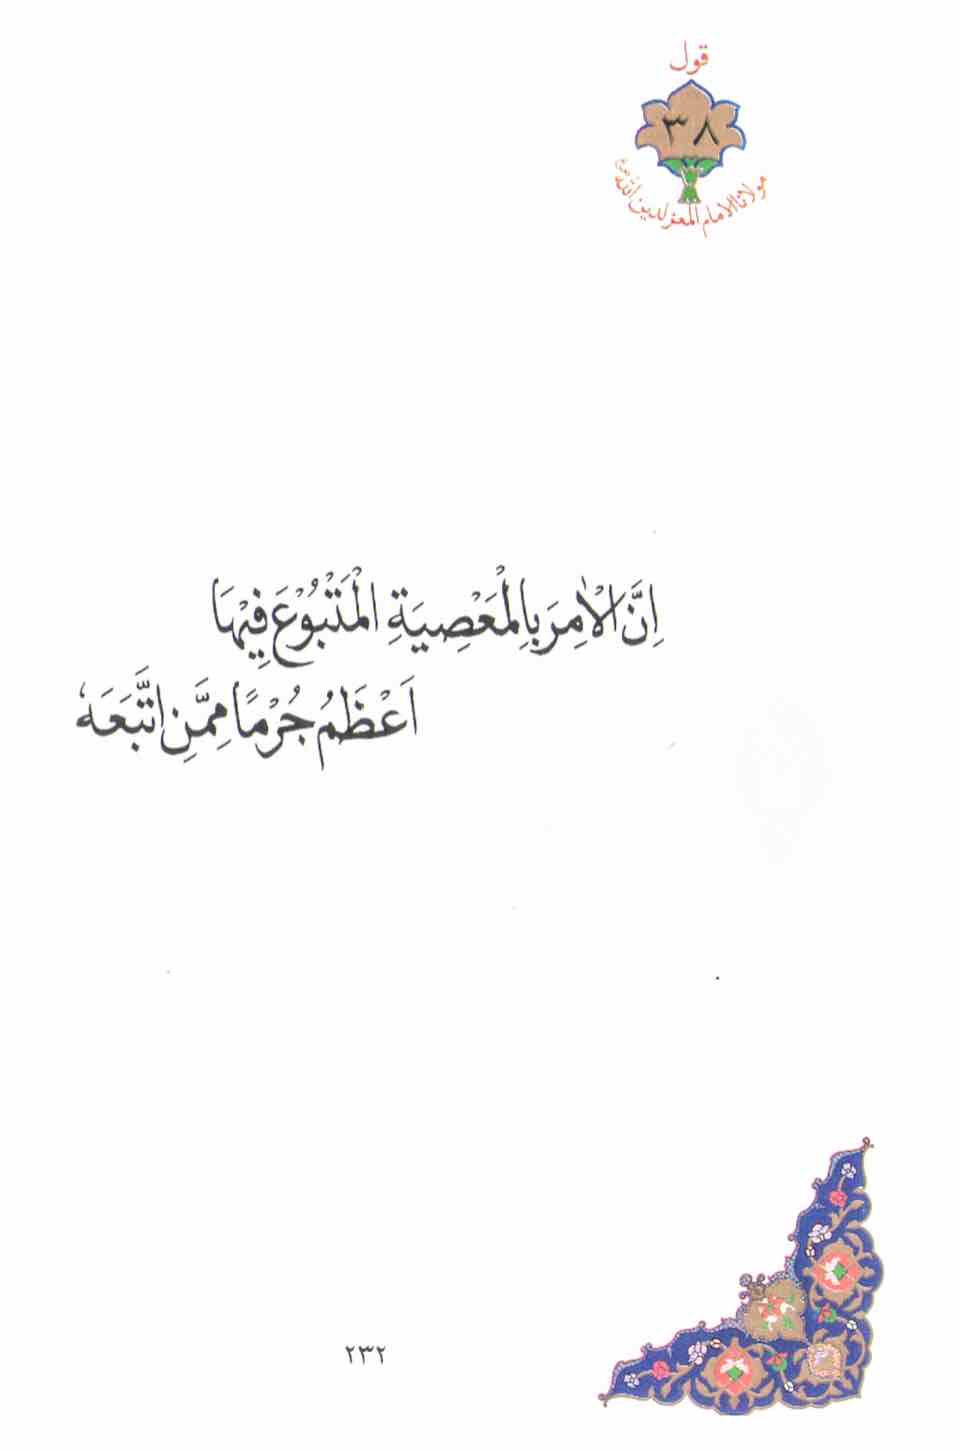 قول
٣٨
مولانا الامام المعز لدين الله
اِنَّ الْاٰمِرَ بِالْمَعْصِيَةِ الْمَتْبُوْعَ فِيْهَا
اَعْظَمُ جُرْمًا مِمَّنِ اتَّبَعَهٗ
٢٣٢